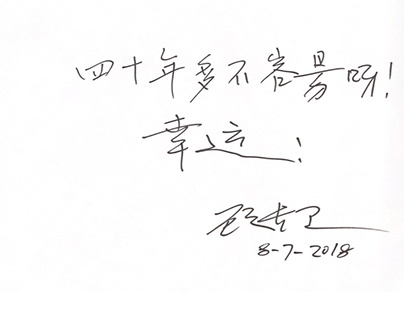 四十年多不容易呀!
幸运!
8-7-2018